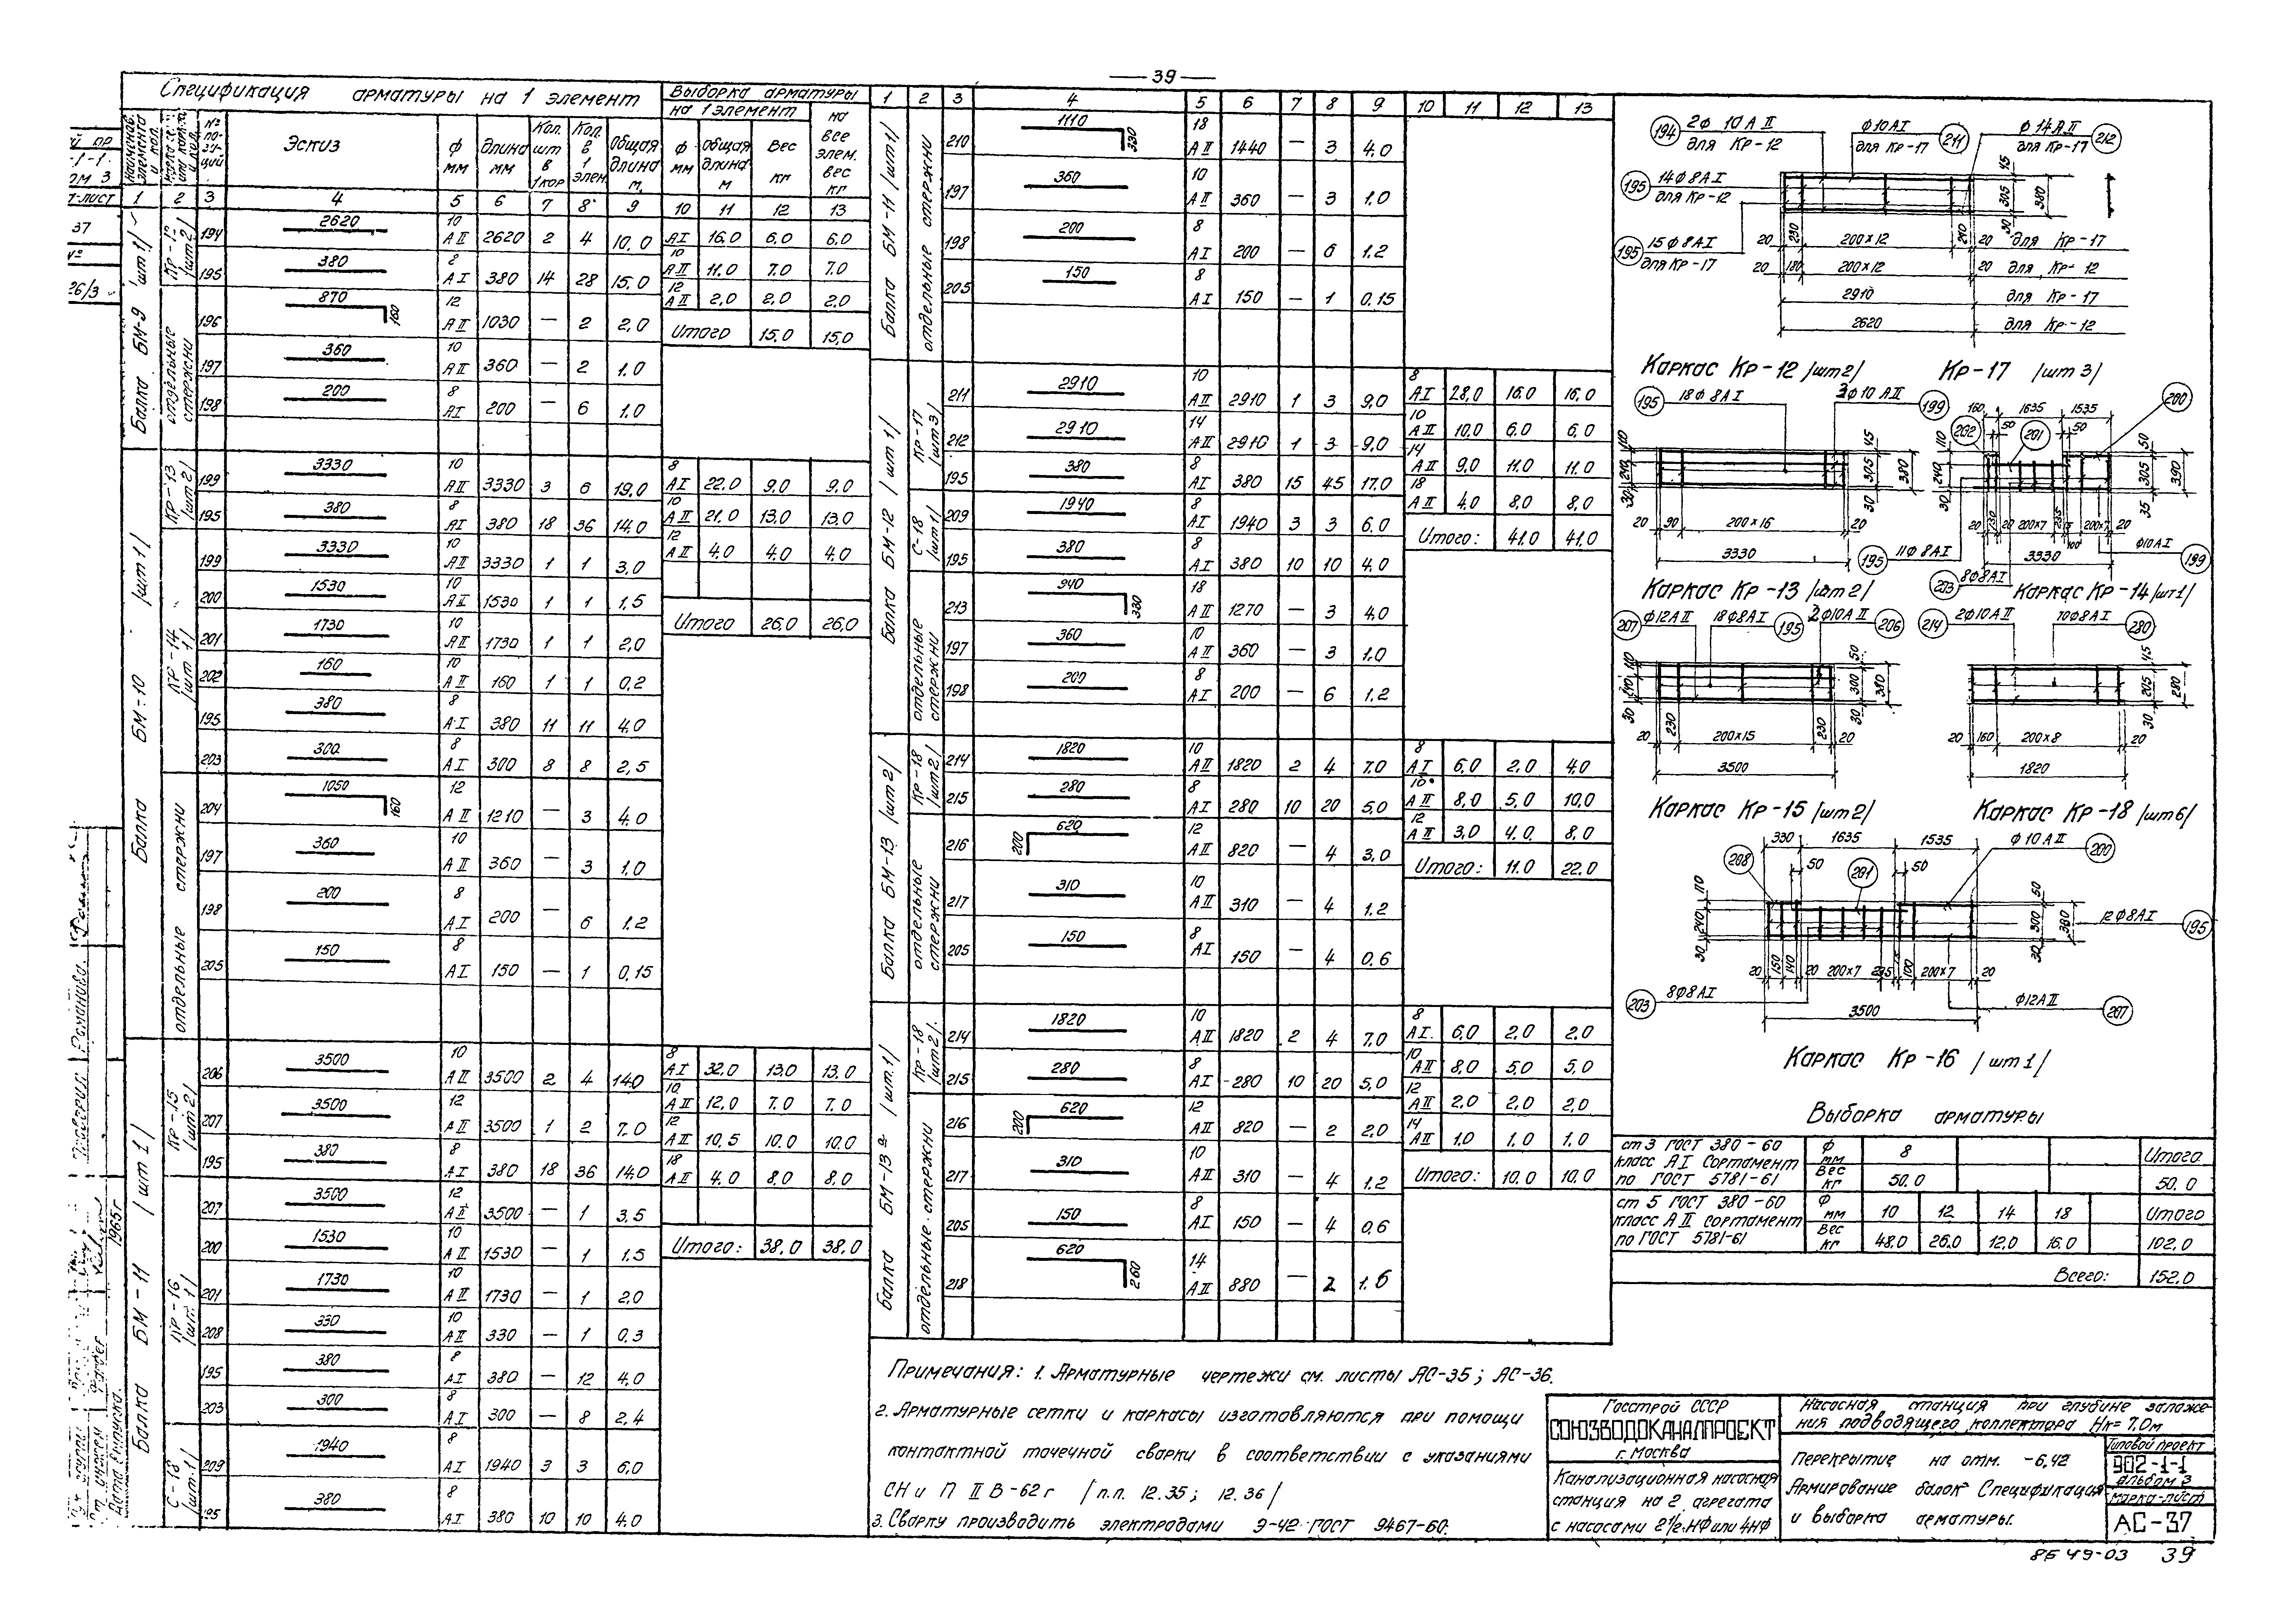 — 39 —
Спецификация арматуры на 1 элемент
Выборка арматуры
на 1 элемент
на все элем. вес кг
Эскиз
ф мм
длина мм
Кол. шт в 1 кор
Кол. в 1 элем
Общая длина м
ф мм
Общая длина м
Вес кг
1 2 3 4 5 6 7 8 9 10 11 12 13
Балка БМ-9 /шт 1/
Кр-12 /шт 2/
194 2620 10 АII 2620 2 4 10.0
195 380 8 АI 380 14 28 15.0
отдельные стержни
196 870 160 12 АII 1030 — 2 2,0
197 360 10 АII 360 — 2 1.0
198 200 8 АI 200 — 6 1.0
АI 16.0 6.0 6.0
10 АII 11.0 7.0 7.0
12 АII 2,0 2,0 2,0
Итого 15.0 15,0
Балка БМ-10 /шт 1/
Кр-13 /шт 2/
199 3330 10 АII 3330 3 6 19,0
195 380 8 АI 380 18 36 14,0
Кр-14 /шт 1/
199 3330 10 АII 3330 1 1 3,0
200 1530 10 АII 1530 1 1 1,5
201 1730 10 АII 1730 1 1 2,0
202 160 10 АII 160 1 1 0,2
195 380 8 АI 380 11 11 4,0
203 300 8 АI 300 8 8 2,5
отдельные стержни
204 1050 160 12 АII 1210 — 3 4.0
197 360 10 АII 360 — 3 1.0
198 200 8 АI 200 — 6 1.2
205 150 8 АI 150 — 1 0,15
8 АI 22,0 9,0 9,0
10 АII 21,0 13,0 13,0
12 АII 4.0 4.0 4.0
Итого 26,0 26,0
Балка БМ-11 /шт 1/
Кр-15 /шт 2/
206 3500 10 АII 3500 2 4 14.0
207 3500 12 АII 3500 1 2 7.0
195 380 8 АI 380 18 36 14,0
Кр-16 /шт 1/
207 3500 12 АII 3500 — 1 3,5
200 1530 10 АII 1530 — 1 1.5
201 1730 10 АII 1730 — 1 2,0
208 330 10 АII 330 — 1 0,3
195 380 8 АI 380 — 12 4,0
203 300 8 АI 300 — 8 2,4
С-18 /шт.1/
209 1940 8 АI 1940 3 3 6,0
195 380 8 АI 380 10 10 4.0
8 АI 32,0 13,0 13.0
10 АII 12,0 7.0 7.0
12 АII 10,5 10.0 10.0
18 АII 4.0 8.0 8,0
Итого: 38,0 38,0
1 2 3 4 5 6 7 8 9 10 11 12 13
Балка БМ-11 /шт 1/
отдельные стержни
210 1110 330 18 АII 1440 — 3 4.0
197 360 10 АII 360 — 3 1.0
198 200 8 АI 200 — 6 1.2
205 150 8 АI 150 — 1 0.15
Балка БМ-12 /шт 1/
Кр-17 /шт 3/
211 2910 10 АII 2910 1 3 9,0
212 2910 14 АII 2910 1 3 9,0
195 380 8 АI 380 15 45 17.0
С-18 /шт 1/
209 1940 8 АI 1940 3 3 6,0
195 380 8 АI 380 10 10 4,0
отдельные стержни
213 940 330 18 АII 1270 — 3 4,0
197 360 10 АII 360 — 3 1.0
198 200 8 АI 200 — 6 1.2
8 АI 28,0 16.0 16,0
10 АII 10,0 6.0 6,0
14 АII 9,0 11.0 11.0
18 АII 4,0 8,0 8,0
Итого: 41.0 41.0
Балка БМ-13 /шт 2/
Кр-18 /шт 2/
214 1820 10 АII 1820 2 4 7.0
215 280 8 АI 280 10 20 5,0
отдельные стержни
216 200 620 12 АII 820 — 4 3,0
217 310 10 АII 310 — 4 1.2
205 150 8 АI 150 — 4 0.6
8 АI 6,0 2,0 4.0
10 АII 8,0 5,0 10,0
12 АII 3,0 4.0 8,0
Итого: 11.0 22.0
Балка БМ-13а /шт.1/
Кр-18 /шт 2/
214 1820 10 АII 1820 2 4 7.0
215 280 8 АI 280 10 20 5,0
отдельные стержни
216 200 620 12 АII 820 — 2 2,0
217 310 10 АII 310 — 4 1.2
205 150 8 АI 150 — 4 0,6
218 620 260 14 АII 880 — 2 1.6
8 АI 6,0 2,0 2,0
10 АII 8,0 5,0 5,0
12 АII 2,0 2,0 2,0
14 АII 1,0 1,0 1,0
Итого: 10,0 10,0
194 2ф 10 АII для Кр-12
ф10АI для Кр-17 211
ф 14 АII для Кр-17 212
195 14ф 8АI для Кр-12
195 15ф 8АI для Кр-17
45 305 30 380
20 230 200×12 240 20 для Кр-17
20 180 200×12 20 для Кр-12
2910 для Кр-17
2620 для Кр-12
Каркас Кр-12 /шт 2/ Кр-17 /шт 3/
195 18ф 8АI 3ф10 АII 199
110 240 30 45 305 30 380
20 90 200×16 20
3330
Каркас Кр-13 /шт 2/
160 1635 1535 200
202 50 201 50
110 240 30 50 305 35 390
20 230 20 200×7 235 200×7 20
100
3330
195 11ф 8АI ф10АI 199
203 8ф8АI
Каркас Кр-14 /шт1/
207 ф12АII 18ф8АI 195 2ф10АII 206
110 240 30 50 300 30 380
20 230 200×15 230 20
3500
Каркас Кр-15 /шт 2/
214 2ф10АII 10ф8АI 280
45 205 30 280
20 160 200×8 20
1820
Каркас Кр-18 /шт 6/
330 1635 1535 ф10 АII 200
208 50 201 50
110 240 30 50 300 30 380
12ф8АI 195
20 150 140 20 200×7 235 100 200×7 20
203 8ф8АI ф12АII 207
3500
Каркас Кр-16 /шт 1/
Выборка арматуры
ст 3 ГОСТ 380-60 класс АI Сортамент по ГОСТ 5781-61
ф мм 8 Итого
Вес кг 50.0 50.0
ст 5 ГОСТ 380-60 класс АII сортамент по ГОСТ 5781-61
ф мм 10 12 14 18 Итого
Вес кг 48,0 26,0 12,0 16.0 102.0
Всего: 152.0
Примечания: 1. Арматурные чертежи см. листы АС-35; АС-36.
2. Арматурные сетки и каркасы изготовляются при помощи
контактной точечной сварки в соответствии с указаниями
СН и П II В-62 г /п.п. 12.35; 12.36/
3. Сварку производить электродами Э-42 ГОСТ 9467-60.
Госстрой СССР
СОЮЗВОДОКАНАЛПРОЕКТ
г. Москва
Канализационная насосная
станция на 2 агрегата
с насосами 2½ НФ или 4НФ
Насосная станция при глубине заложе-
ния подводящего коллектора Нк=7.0м
Перекрытие на отм. -6,42
Армирование балок Спецификация
и выборка арматуры.
Типовой проект
902-1-1
альбом 3
марка-лист
АС-37
8649-03 39
37
26/3
Романова.
1965г
Дата выпуска.